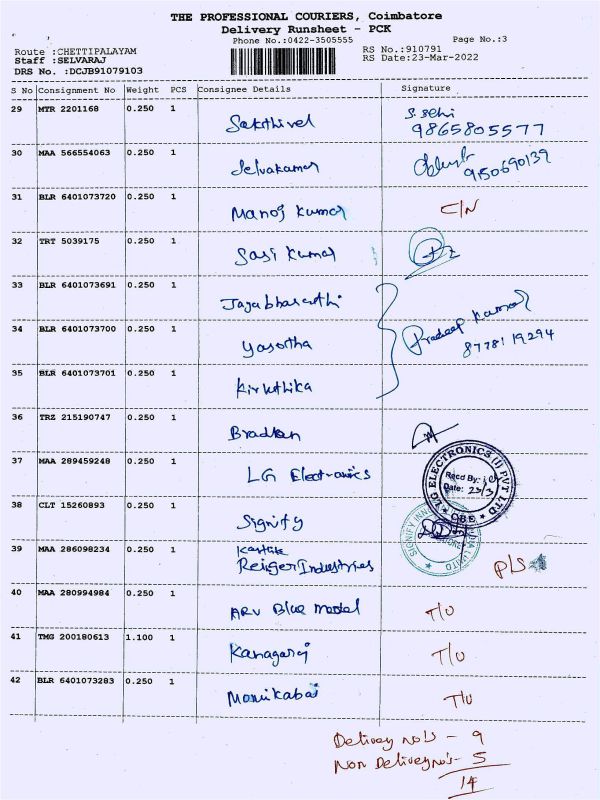 THE PROFESSIONAL COURIERS, Coimbatore
Delivery Runsheet - PCK
Phone No.:0422-3505555
Page No.:3
Route :CHETTIPALAYAM
RS No.:910791
Staff :SELVARAJ
RS Date:23-Mar-2022
DRS No. :DCJB91079103
S No Consignment No Weight PCS Consignee Details Signature
29 MTR 2201168 0.250 1 Sakthivel S. Selvi 9865805577
30 MAA 566554063 0.250 1 Selvakumar 9150690139
31 BLR 6401073720 0.250 1 Manoj Kumar C/N
32 TRT 5039175 0.250 1 Sasi Kumar
33 BLR 6401073691 0.250 1 Jayabharathi
34 BLR 6401073700 0.250 1 Yasotha Pradeep Kumar 8778119294
35 BLR 6401073701 0.250 1 Kiruthika
36 TRZ 215190747 0.250 1 Bradken
37 MAA 289459248 0.250 1 LG Electronics LG ELECTRONICS (I) PVT LTD Recd By: Date: 23/3 CBE
38 CLT 15260893 0.250 1 Signify
39 MAA 286098234 0.250 1 Kartik
Reiger Industries P/S
40 MAA 280994984 0.250 1 ARV Blue Metal T/U
41 TMG 200180613 1.100 1 Kanagaraj T/U
42 BLR 6401073283 0.250 1 Manikabai T/U
Delivery no's - 9
Non Delivery no's - 5
14